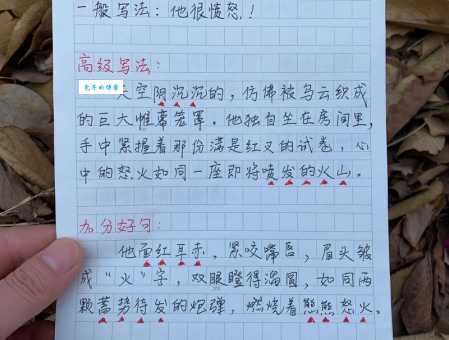 一般写法：他很愤怒！
高级写法：
天空阴沉沉的，仿佛被乌云织成
的巨大帷幕笼罩。他独自坐在房间里，
手中紧握着那份满是红叉的试卷，心
中的怒火如同一座即将喷发的火山。
加分好句：
他面红耳赤，紧咬嘴唇，眉头皱
成“火”字，双眼瞪得溜圆，如同两
颗蓄势待发的炮弹，燃烧着熊熊怒火。